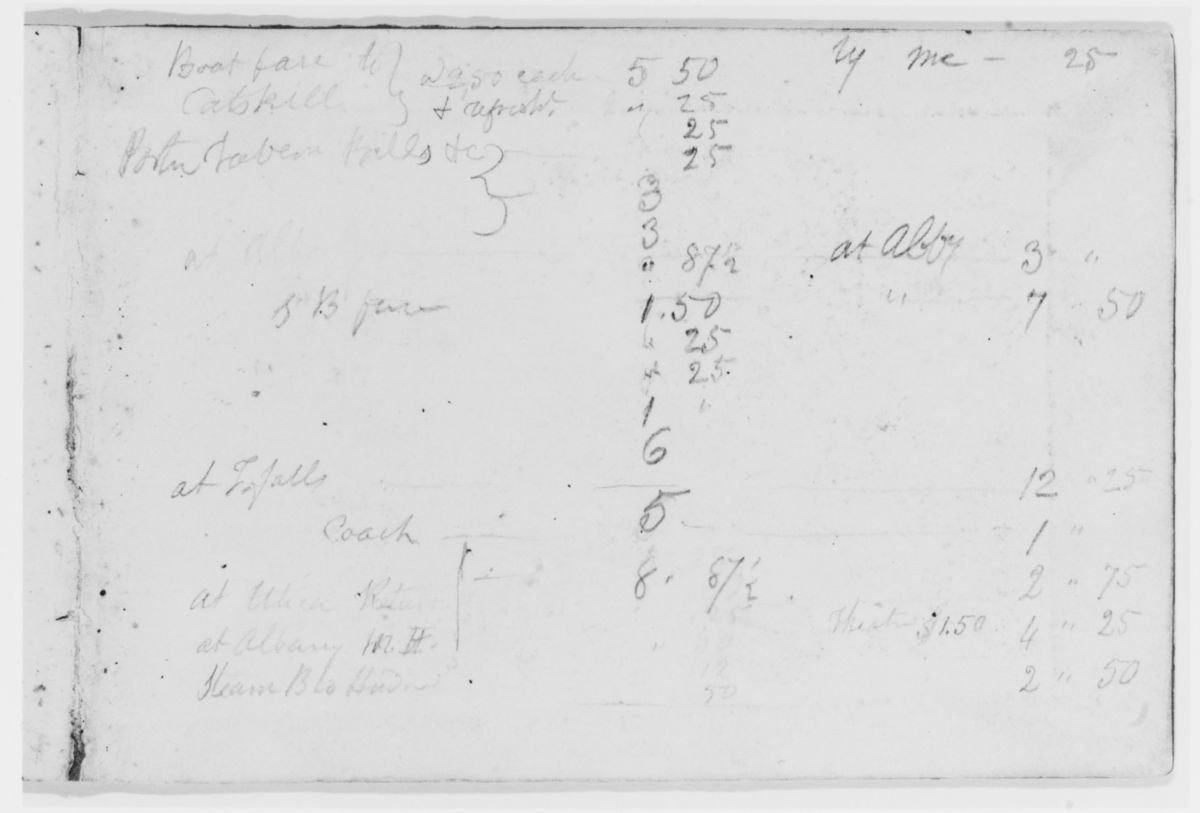 Boat fare to } 2.50 each 5 50 by me - 25
Catskill } & refresht " 25
25
Tavern Bills &c 25
3
3
at Alb " 87½ at Alby 3 "
S B fare 1.50 " 7 " 50
" 25
" 25
1 "
6
at T. falls 12 " 25
Coach 5 1 "
at Utica Return 8 " 87½ 2 " 75
at Albany M. H. " Theatre $1.50 4 " 25
12
Steam B to Hudn 50 2 " 50